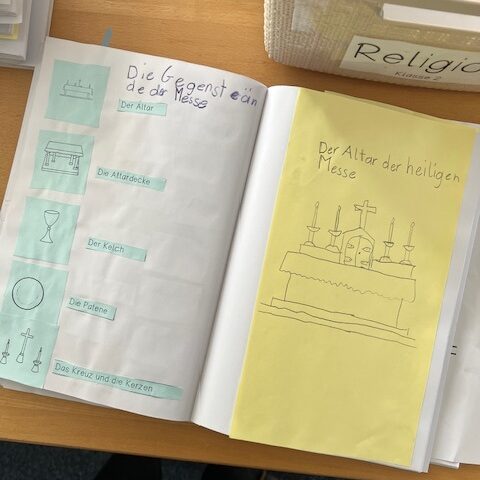 Die Gegenst eän
de der Messe
Der Altar
Die Altardecke
Der Kelch
Die Patene
Das Kreuz und die Kerzen
Der Altar der heiligen
Messe
Religio
Klasse 2